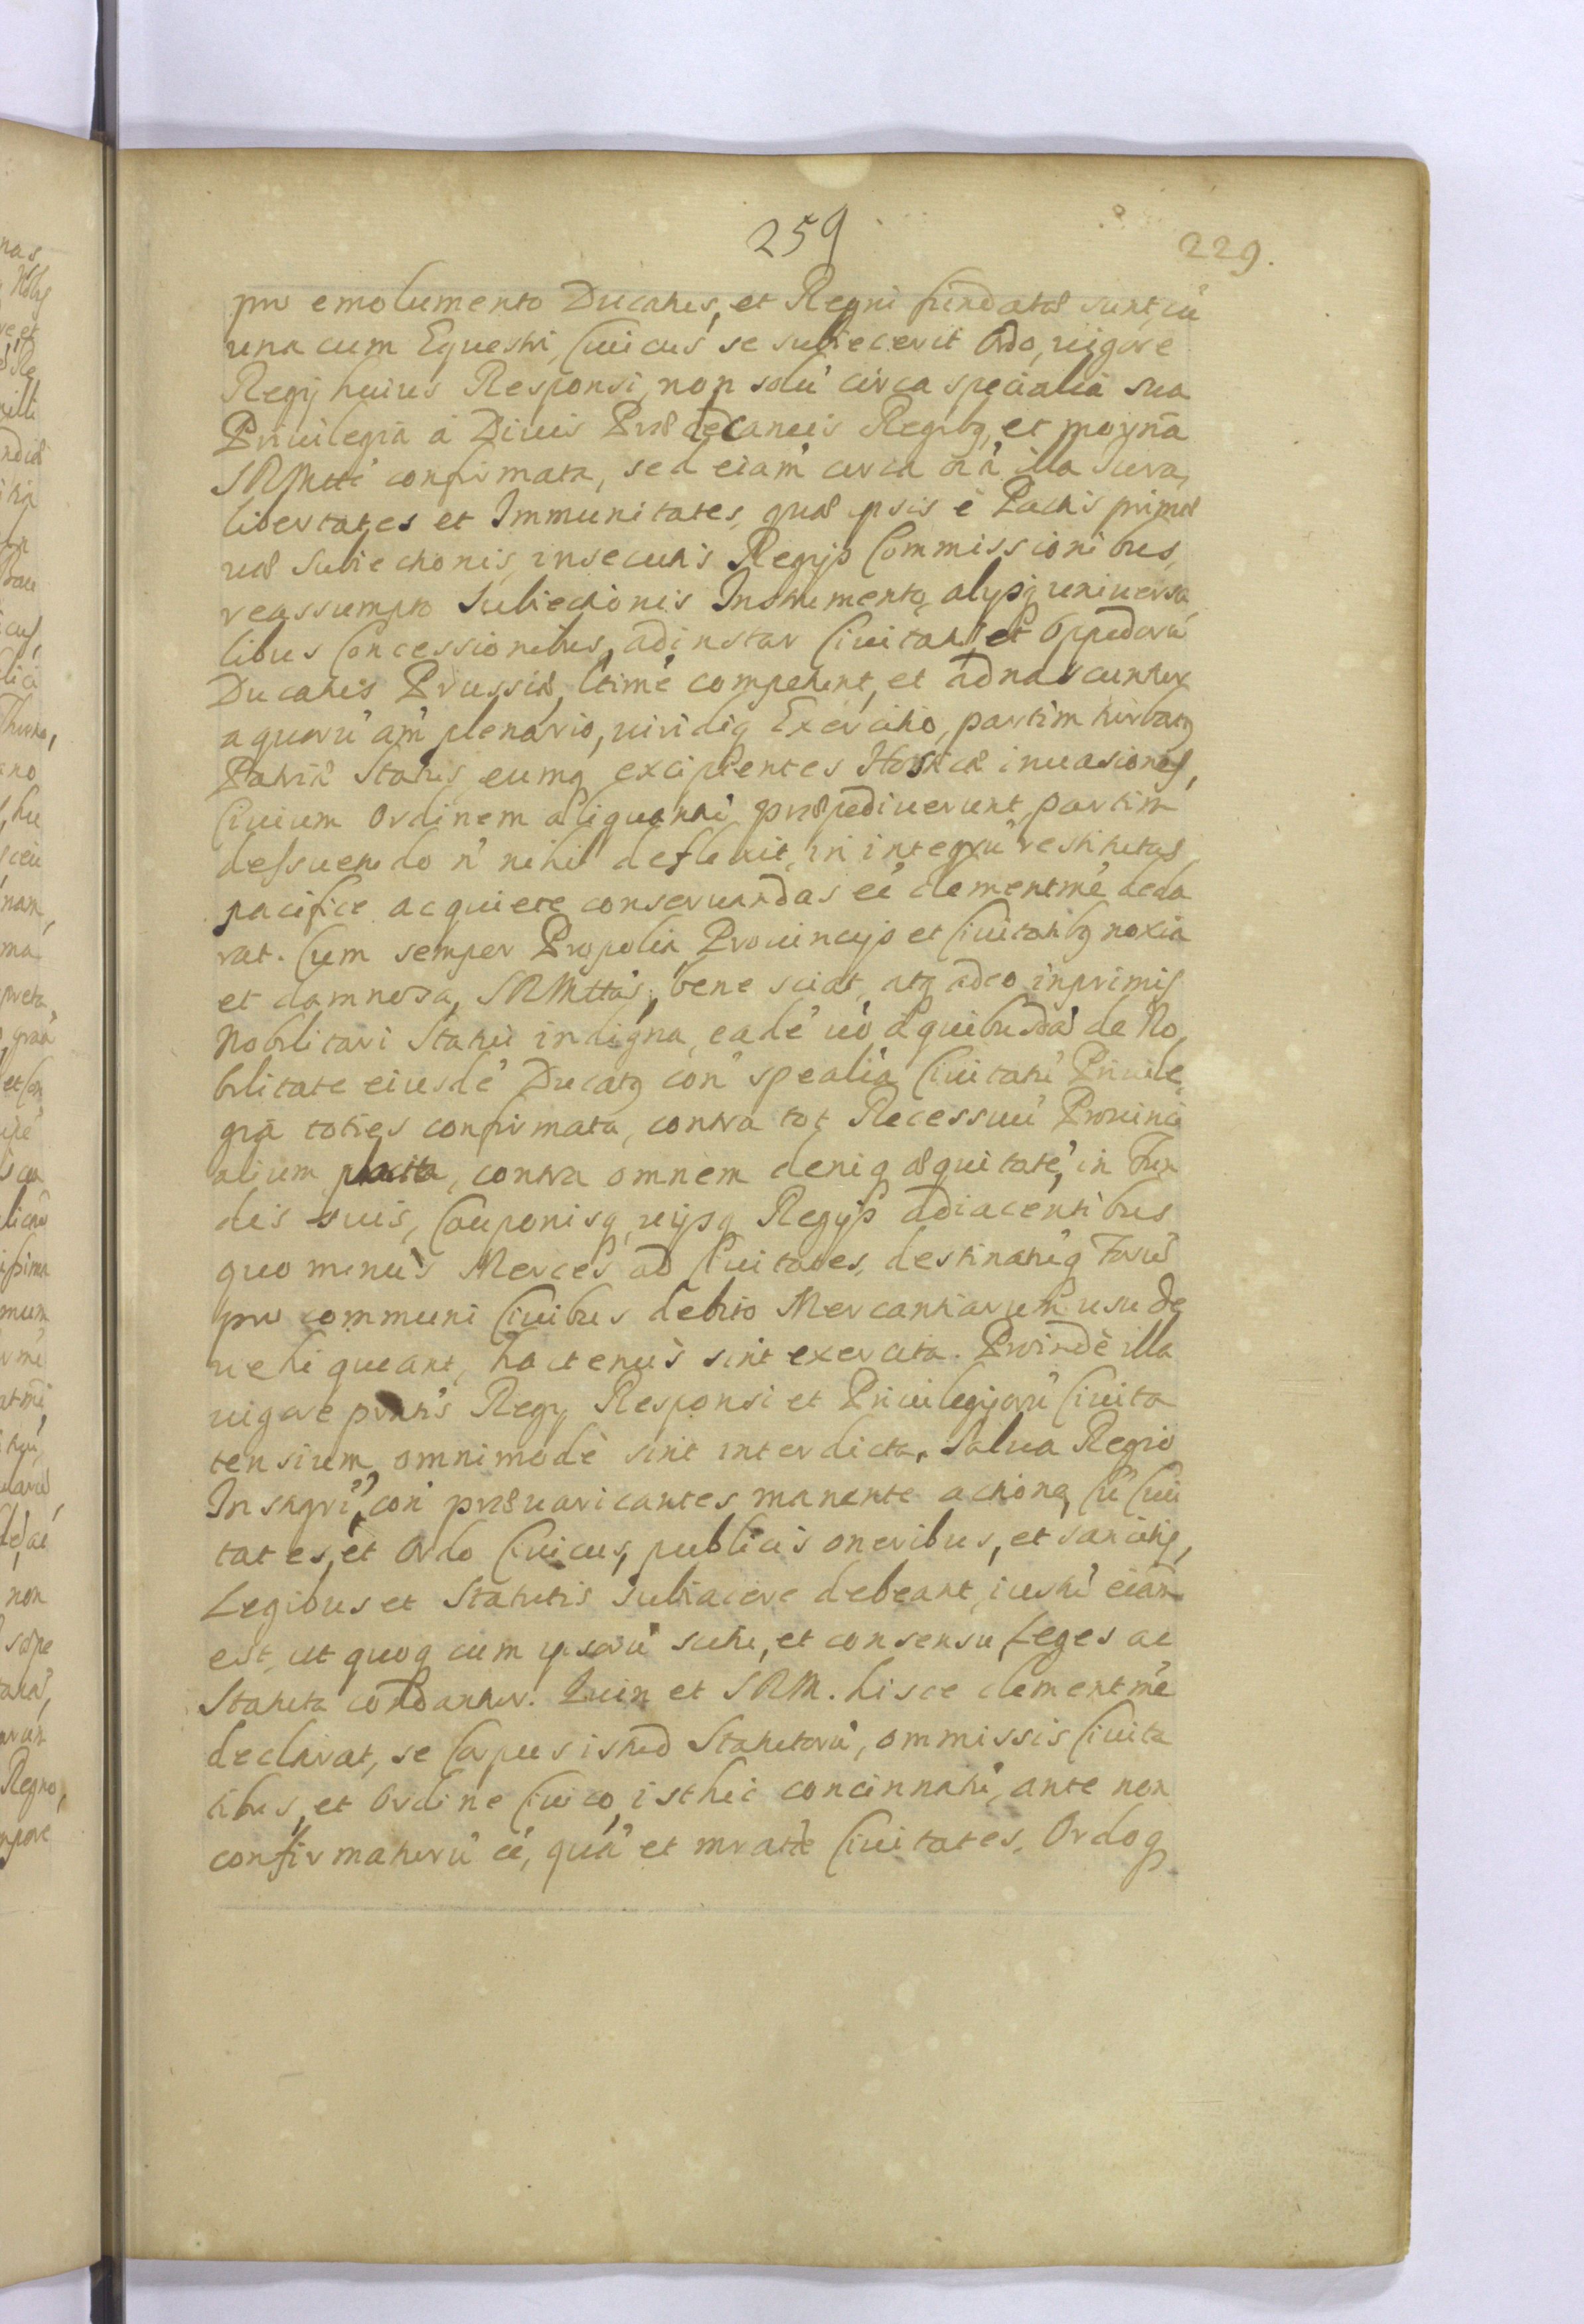 259
229.
pro emolumento Ducatus, et Regni fundatae sunt, cũ
una cum Equestri, Civicus se subiecerit Ordo, vigore
Regij huius Responsi, non solũ circa specialia sua
Privilegia à Divis Praedecaneis Regibq, et moderna
SRMtte confirmata, sed eiam circa oĩa illa Iura,
libertates et Immunitates, quae ipsis è Pactis primae
vae Subiectionis, insecutis Regijs Commissionibus,
reassumpto Subiectionis Instrumento, alijsq universa
libus Concessionibus, ad instar Civitatũ et Oppidorũ
Ducatus Prussiae, ltimè competunt, et adnascuntur
a quorũ am plenario, viridiq Exercitio, partim turbatq
Patriae Status, eumq excipientes Hosticae invasiones,
Civium Ordinem aliquantũ praepediverunt, partim
dessuetudo ñ nihil defleuit, in integrũ restitutas,
pacifice ac quiete conservandas eẽ clementmè decla
rat. Cum semper Propolia Provincijs et Civitatibq noxia
et damnosa, SRMttas, bene sciat, atq adeo inprimis
Nobilitari Statui indigna, eadẽ verò à quibusdã de No
bilitate eiusdẽ Ducatq con spealia Civitatũ Privile
gia toties confirmata, contra tot Recessuũ Provinci
alium placita, contra omnem deniq aequitatẽ, in Fun
dis suis, Cauponisq, vijsq Regijs adiacentibus
quo minùs Merces ad Civitates, destinatuq Forũ
pro communi Civibus debito Mercantiarum usu de
vehi queant, hactenùs sint exercita. Proindè illa
vigore pntis Regij Responsi et Privilegiorũ Civita
tensium omnimodè sint interdicta. Salva Regio
Instigri, con praevaricantes manente actione, Cũ Civi
tates, et Ordo Civicus, publicis oneribus, et sancitis,
Legibus et Statutis subiacere debeant, iustũ eiam
est, ut quoq cum ipsorũ scitu, et consensu Leges ac
Statuta condantur. Quin et SRM. hisce clementmè
declarat, se Corpus istud Statutorũ, ommissis Civita
tibus, et Ordine Civico, isthic concinnatũ, ante non
confirmaturũ eẽ, quã et mratae Civitates, Ordoq